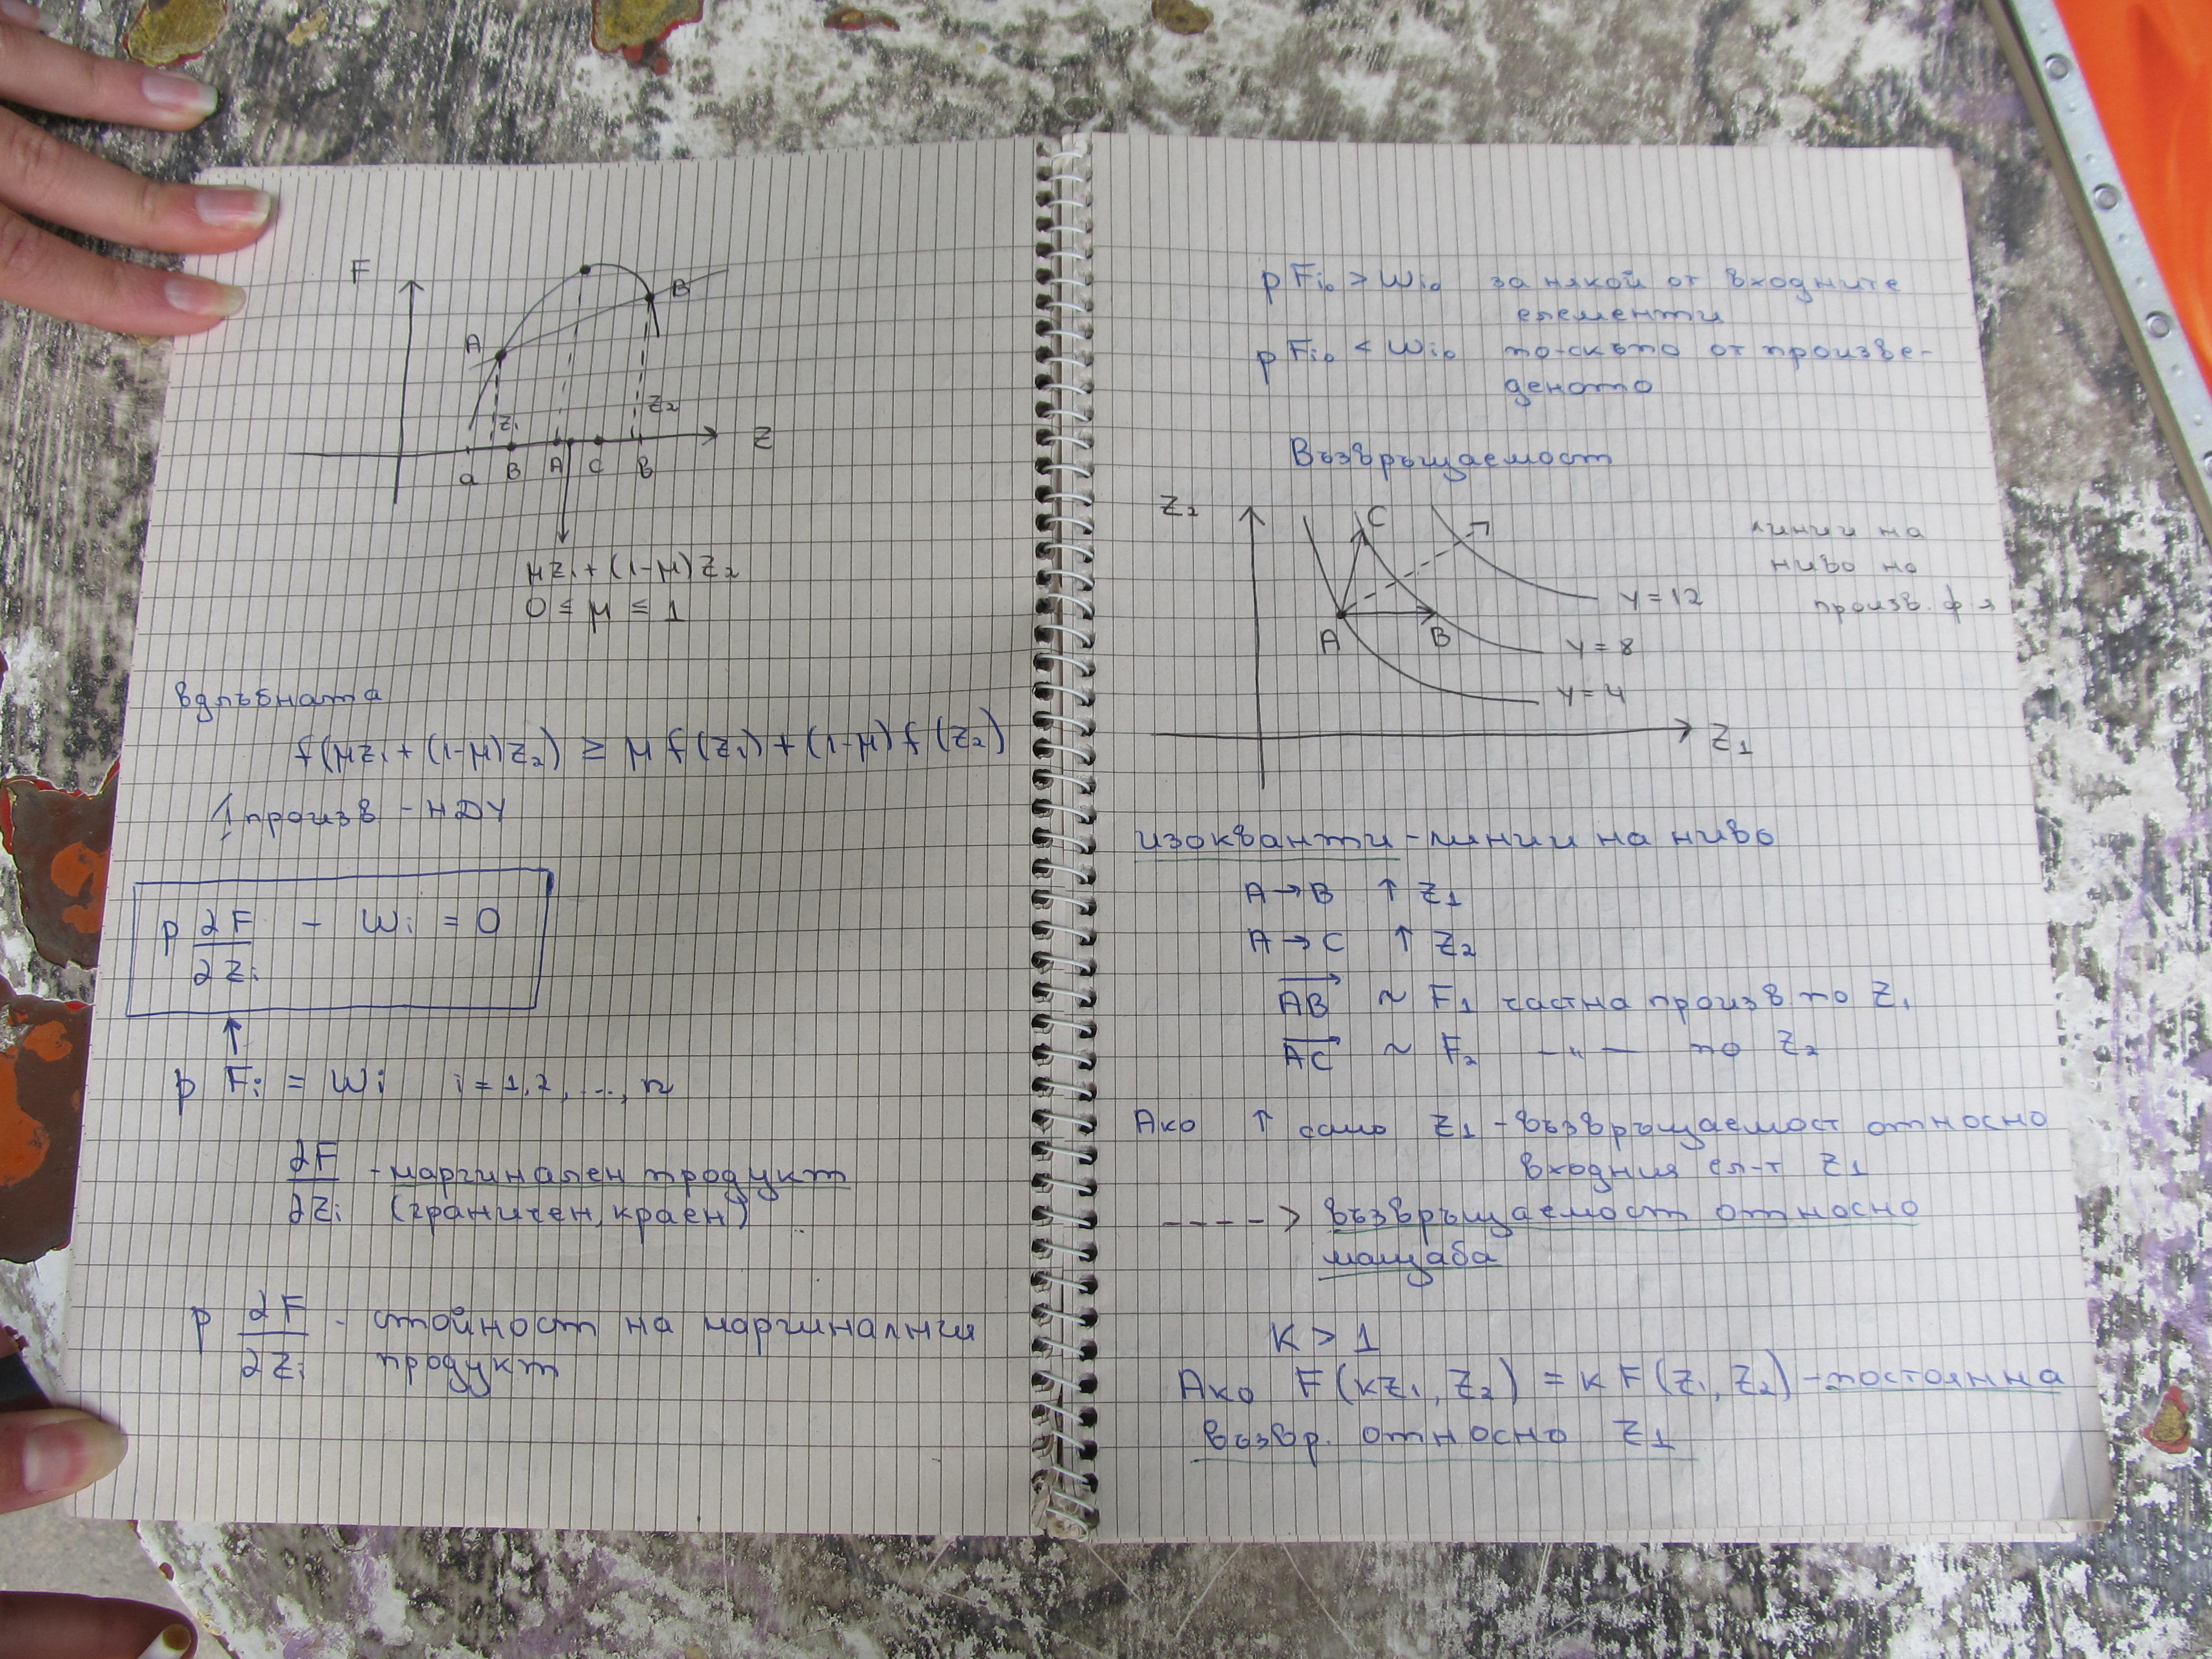 F
A
B
z₁
z₂
z
a B A C B
μz₁ + (1-μ)z₂
0 ≤ μ ≤ 1
вдлъбната
f(μz₁ + (1-μ)z₂) ≥ μ f(z₁) + (1-μ) f(z₂)
1 произв - НДУ
p ∂F/∂zᵢ - wᵢ = 0
↑
p Fᵢ = wᵢ i = 1,2, ..., n
∂F/∂zᵢ - маргинален продукт
(граничен, краен)
p ∂F/∂zᵢ - стойност на маргиналния
продукт
p Fᵢ₀ > wᵢ₀ за някой от входните
елементи
p Fᵢ₀ < wᵢ₀ по-скъпо от произве-
деното
Възвръщаемост
z₂
C
линии на
ниво на
произв. ф-я
Y = 12
A
B
Y = 8
Y = 4
z₁
изокванти - линии на ниво
A → B ↑ z₁
A → C ↑ z₂
AB ~ F₁ частна произв по z₁
AC ~ F₂ -"- по z₂
Ако ↑ само z₁ - възвръщаемост относно
входния ел-т z₁
----> възвръщаемост относно
мащаба
K > 1
Ако F(kz₁, z₂) = k F(z₁, z₂) - постоянна
възвр. относно z₁